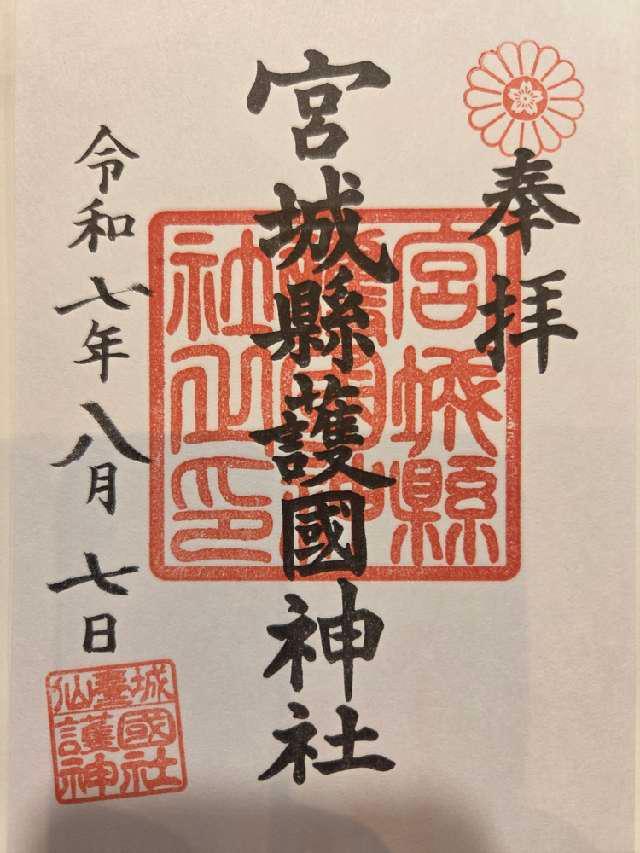 奉拝
宮城縣護國神社
令和七年八月七日
宮城縣
護國神
社之印
仙臺城
護國
神社